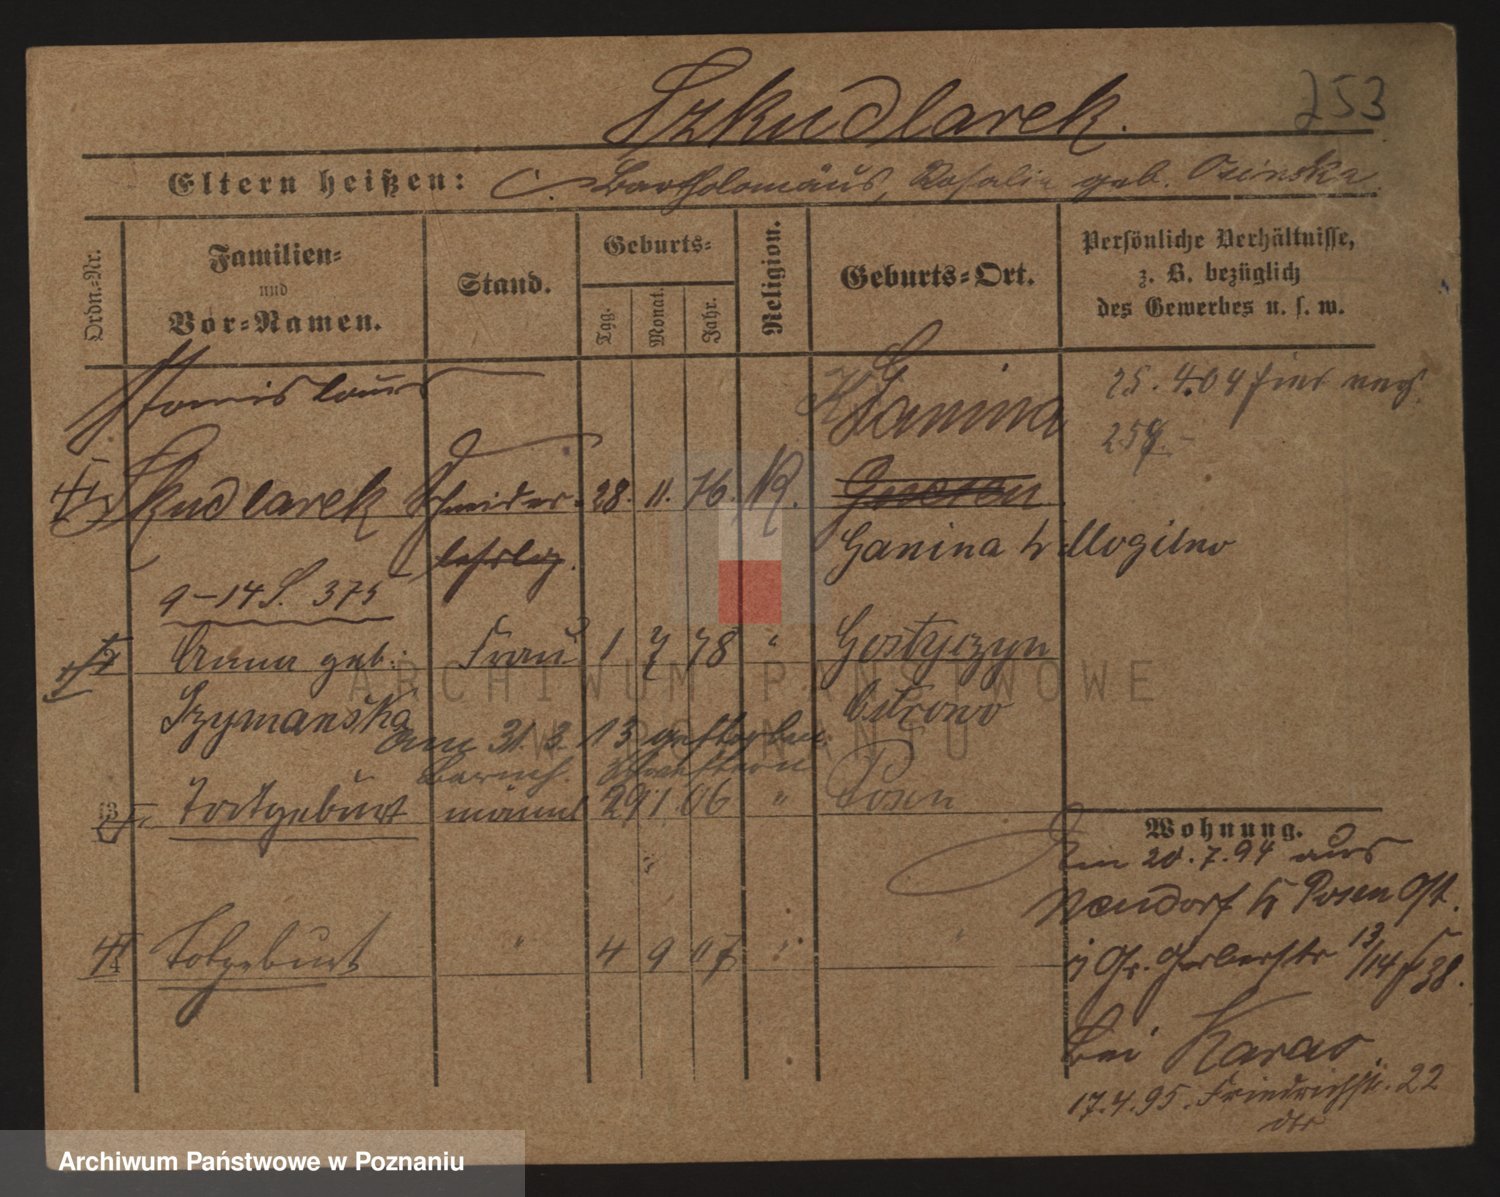 253
Szkudlarek.
Eltern heißen: Bartholomäus, Rosalie geb. Osinska.
Ordn.-Nr.
Familien-
und
Vor-Namen.
Stand.
Geburts-
Tgg.
Monat.
Jahr.
Religion.
Geburts-Ort.
Persönliche Verhältnisse,
z. B. bezüglich
des Gewerbes u. s. w.
Stanislaus
Ganina
25. 4. 04 hier
Skudlarek Schneider- 28. 11. 76. K.
Gnesen
lehrlg.
Ganina b Mogilno
9-14 S. 375
Anna geb. Frau 1 7 78 " Gostyczyn
Szymanska
Am 31. 3. 13 gestorben.
Ostrowo
Totgeburt männl 29 1 06 " Posen
Totgeburt " 4 9 07 " "
Wohnung.
Am 20. 7. 94 aus
b Posen Ost.
Gr. Gerberstr 13/14 38.
bei
17. 4. 95. Friedrichstr. 22
ARCHIWUM PAŃSTWOWE
W POZNANIU
Archiwum Państwowe w Poznaniu